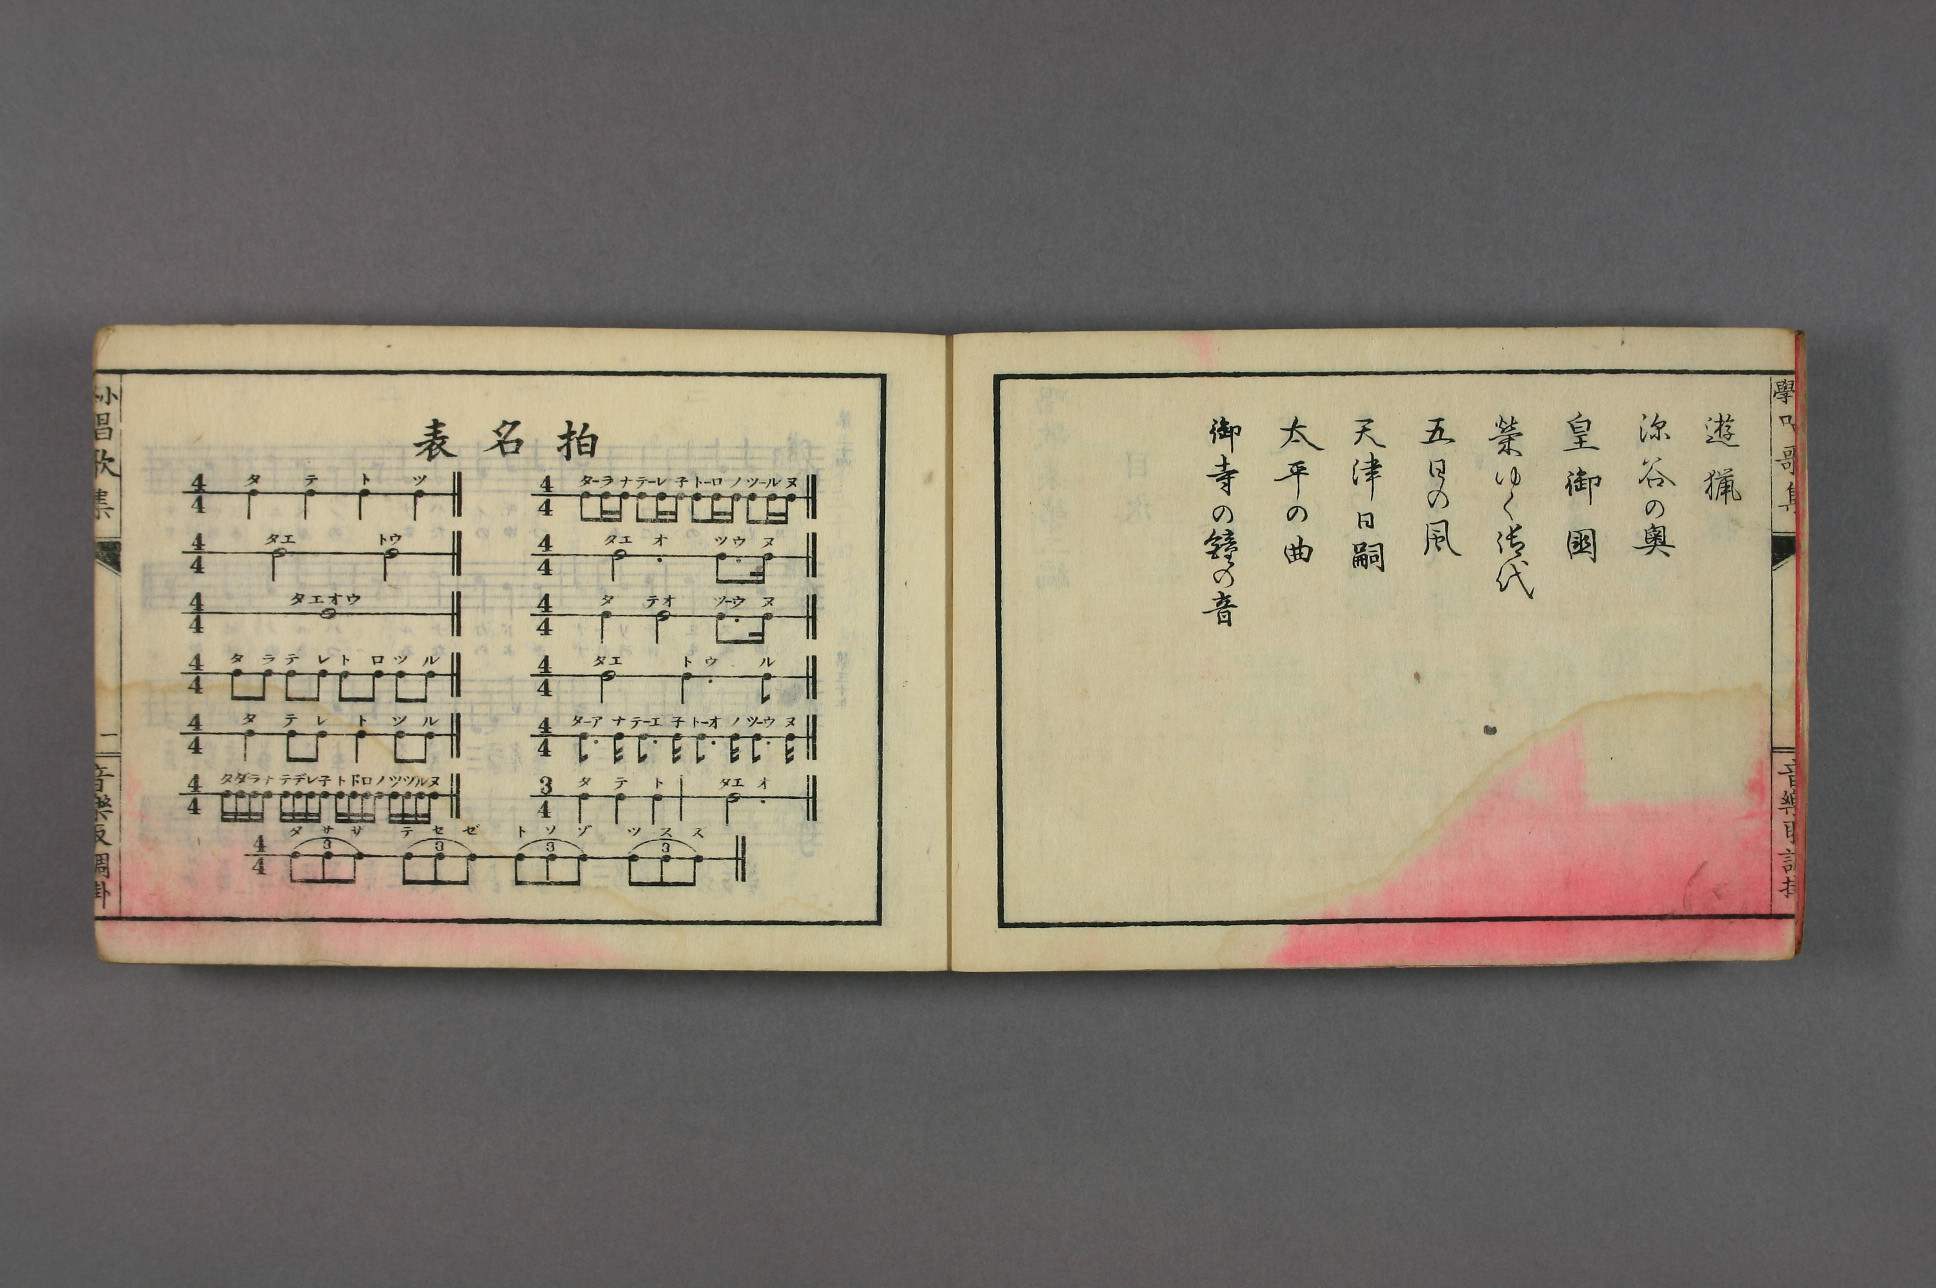 遊猟
深谷の奥
皇御國
榮ゆく御代
五日の風
天津日嗣
太平の曲
御寺の鐘の音
拍名表
4/4 タ テ ト ツ
4/4 タエ トウ
4/4 タエオウ
4/4 タ ラ テ レ ト ロ ツ ル
4/4 タ テ レ ト ツ ル
4/4 タダラナ テデレ子 トドロノ ツヅルヌ
4/4 ターラナ テーレ子 トーロノ ツールヌ
4/4 タエ オ ツウ ヌ
4/4 タ テオ ツーウ ヌ
4/4 タエ トウ ル
4/4 ターア ナ テーエ 子 トーオ ノ ツーウ ヌ
3/4 タ テ ト タエ オ
4/4 タ サ サ テ セ ゼ ト ソ ゾ ツ ス ス
3 3 3 3
唱歌集
一